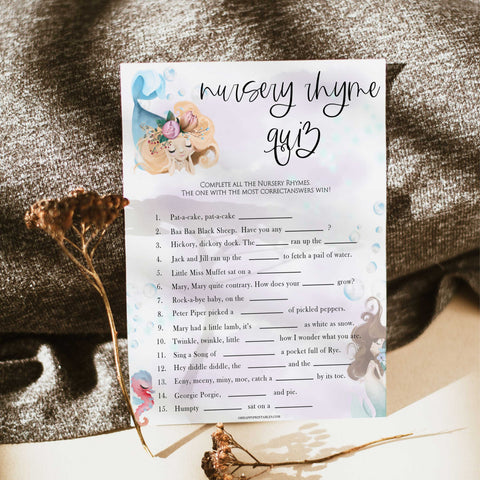 nursery rhyme
quiz
Complete all the Nursery Rhymes.
The one with the most correctanswers win!
1. Pat-a-cake, pat-a-cake ____________
2. Baa Baa Black Sheep. Have you any __________ ?
3. Hickory, dickory dock. The _______ ran up the _______
4. Jack and Jill ran up the ________ to fetch a pail of water.
5. Little Miss Muffet sat on a __________
6. Mary, Mary quite contrary. How does your _______ grow?
7. Rock-a-bye baby, on the _________
8. Peter Piper picked a __________ of pickled peppers.
9. Mary had a little lamb, it's _________ as white as snow.
10. Twinkle, twinkle, little _______ how I wonder what you are.
11. Sing a Song of ________ a pocket full of Rye.
12. Hey diddle diddle, the _______ and the ________
13. Eeny, meeny, miny, moe, catch a _______ by its toe.
14. Georgie Porgie, _________ and pie.
15. Humpty _________ sat on a _________
OHHAPPYPRINTABLES.COM